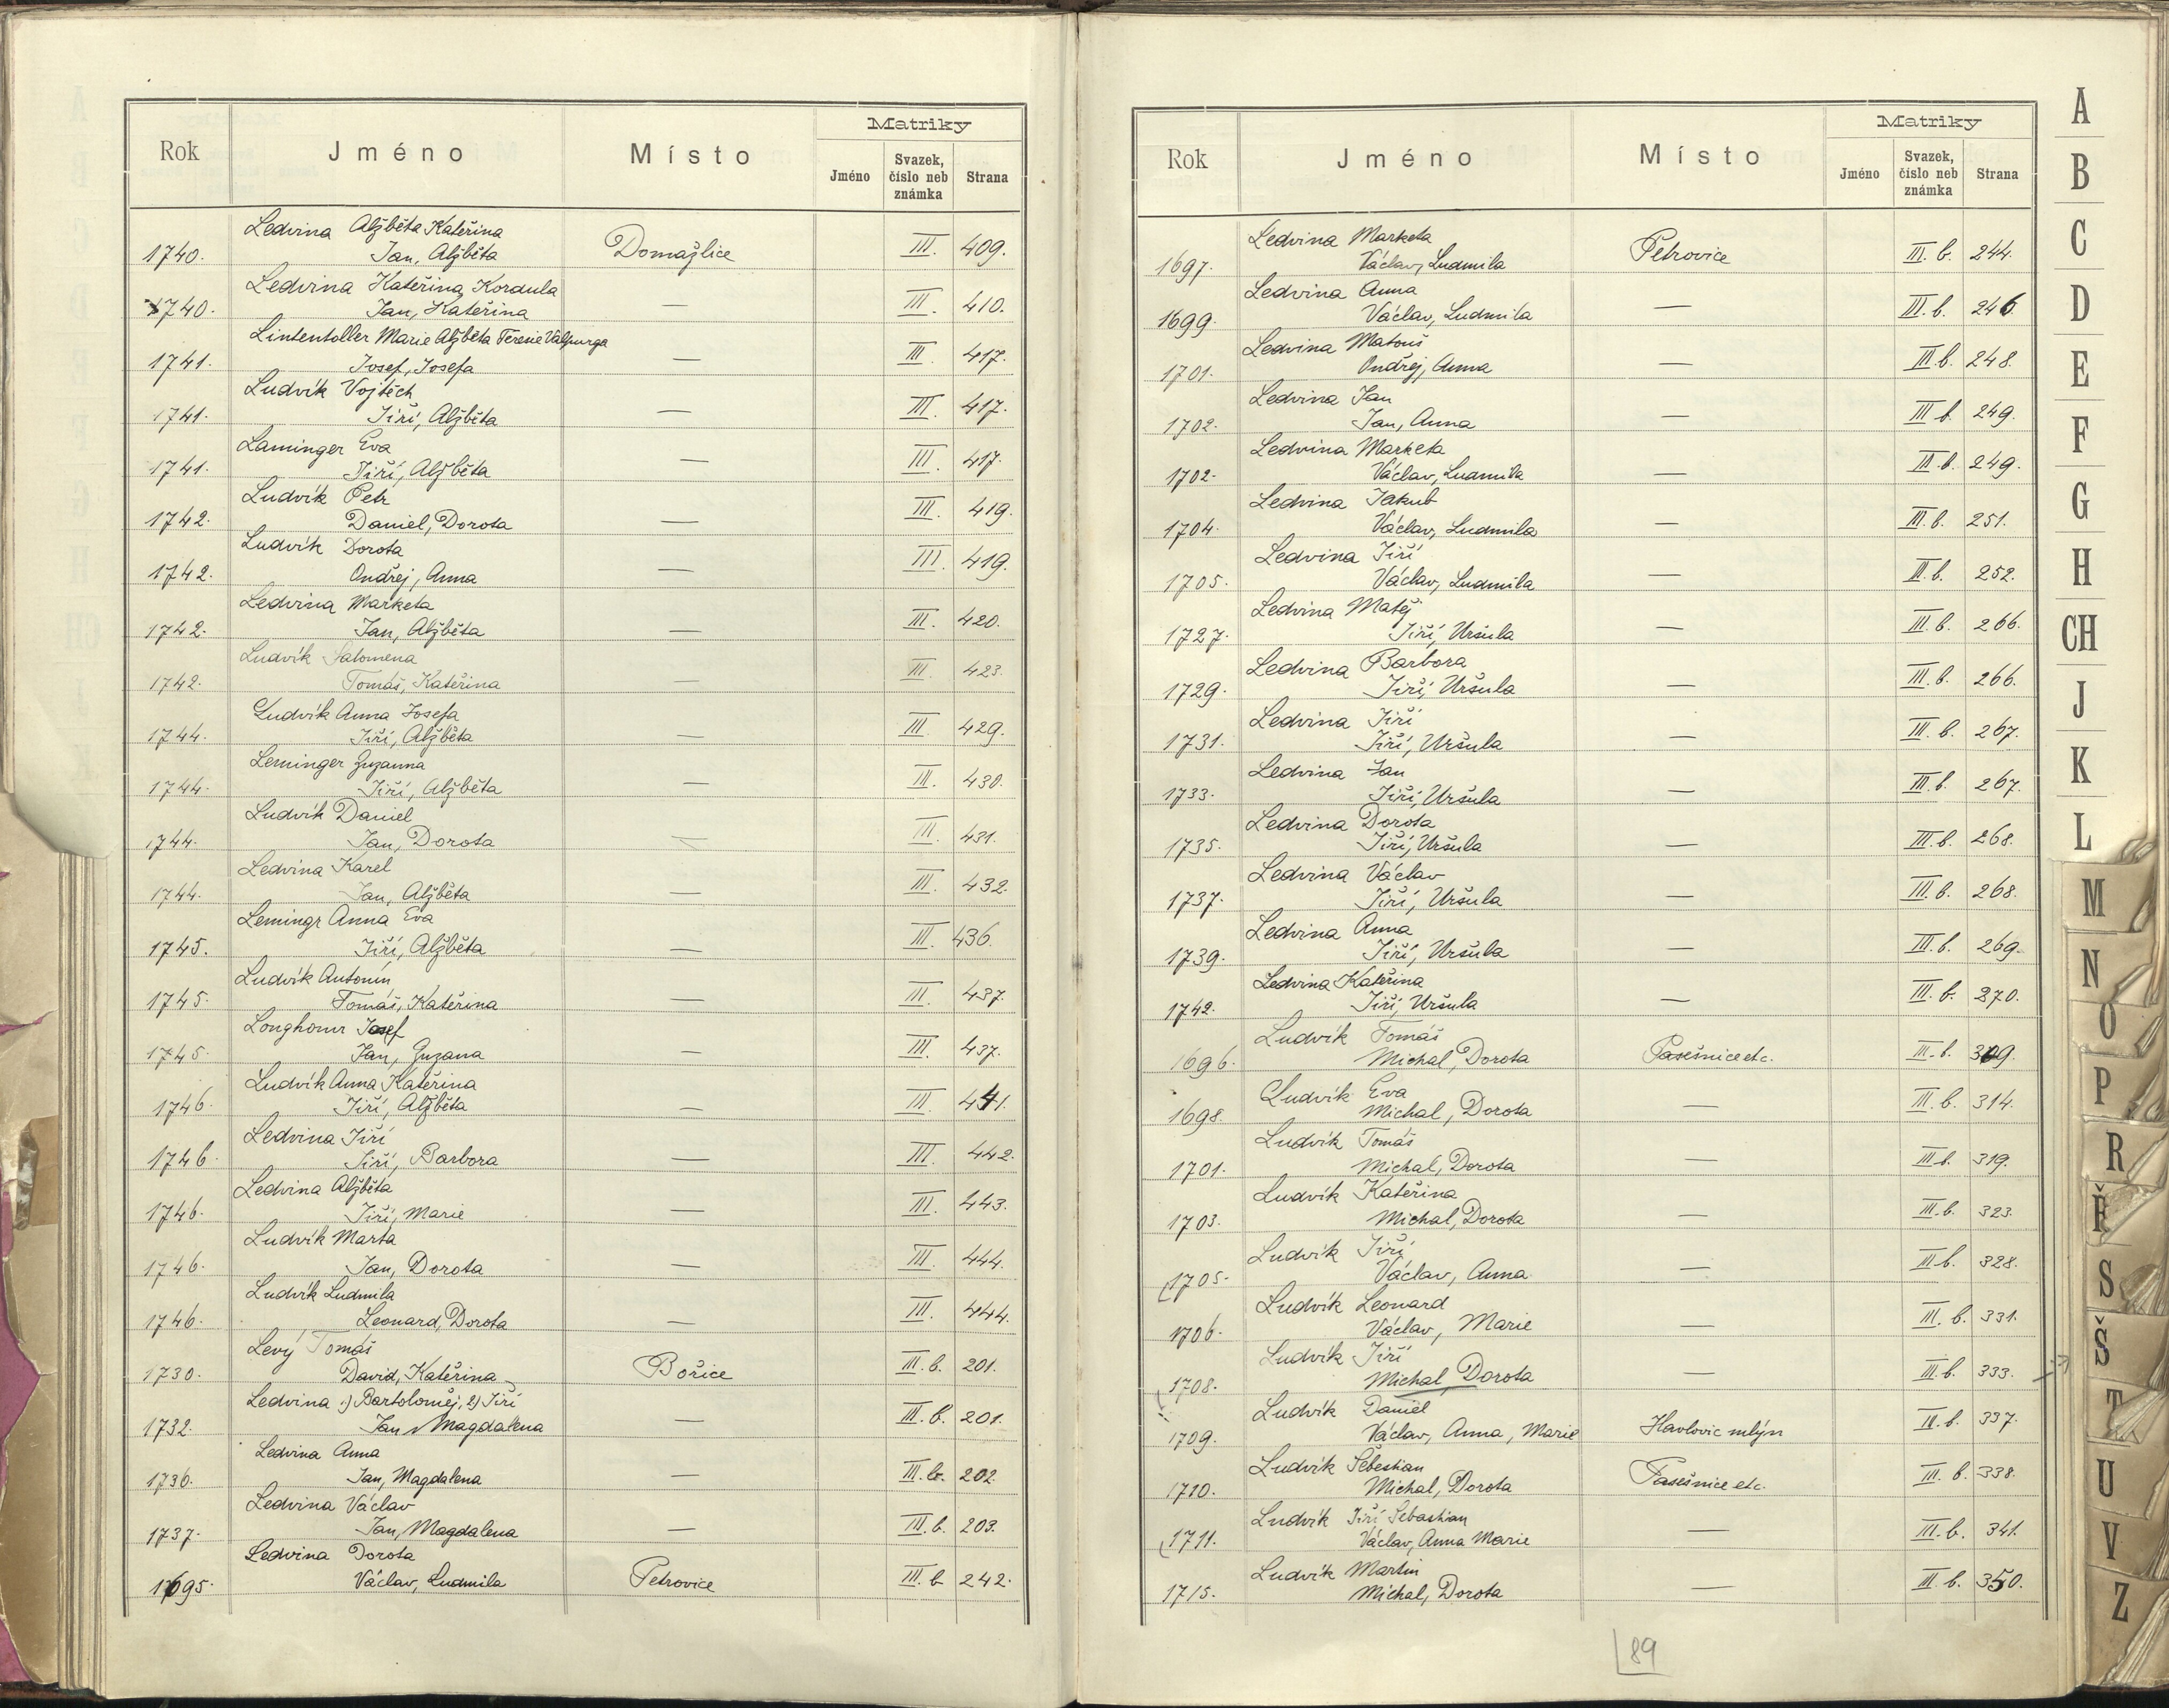 Rok Jméno Místo Matriky
Jméno Svazek, číslo neb známka Strana
Ledvina Alžběta Kateřina
1740. Jan, Alžběta Domažlice III. 409.
Ledvina Kateřina Kordula
1740. Jan, Kateřina — III. 410.
Lintentoller Marie Alžběta Terezie Valpurga
1741. Josef, Josefa — III 417.
Ludvík Vojtěch
1741. Jiří, Alžběta — III. 417.
Laminger Eva
1741. Jiří, Alžběta — III. 417.
Ludvík Petr
1742. Daniel, Dorota — III. 419.
Ludvík Dorota
1742. Ondřej, Anna — III. 419.
Ledvina Marketa
1742. Jan, Alžběta — III. 420.
Ludvík Salomena
1742. Tomáš, Kateřina — III. 423.
Ludvík Anna Josefa
1744. Jiří, Alžběta — III. 429.
Leminger Zuzanna
1744. Jiří, Alžběta — III. 430.
Ludvík Daniel
1744. Jan, Dorota — III. 431.
Ledvina Karel
1744. Jan, Alžběta — III. 432.
Lemingr Anna Eva
1745. Jiří, Alžběta — III. 436.
Ludvík Antonín
1745. Tomáš, Kateřina — III. 437.
Josef
1745. Jan, Zuzana — III. 437.
Ludvík Anna Kateřina
1746. Jiří, Alžběta — III. 441.
Ledvina Jiří
1746. Jiří, Barbora — III. 442.
Ledvina Alžběta
1746. Jiří, Marie — III. 443.
Ludvík Marta
1746. Jan, Dorota — III. 444.
Ludvík Ludmila
1746. Leonard, Dorota — III. 444.
Levý Tomáš
1730. David, Kateřina Bořice III. b. 201.
Ledvina 1) Bartoloměj, 2) Jiří
1732. Jan, Magdalena — III. b. 201.
Ledvina Anna
1736. Jan, Magdalena — III. b. 202.
Ledvina Václav
1737. Jan, Magdalena — III. b. 203.
Ledvina Dorota
1695. Václav, Ludmila Petrovice III. b 242.
Rok Jméno Místo Matriky
Jméno Svazek, číslo neb známka Strana
Ledvina Marketa
1697. Václav, Ludmila Petrovice III. b. 244.
Ledvina Anna
1699. Václav, Ludmila — III. b. 246.
Ledvina Matouš
1701. Ondřej, Anna — III. b. 248.
Ledvina Jan
1702. Jan, Anna — III b. 249.
Ledvina Marketa
1702. Václav, Ludmila — III. b. 249.
Ledvina Jakub
1704. Václav, Ludmila — III. b. 251.
Ledvina Jiří
1705. Václav, Ludmila — III. b. 252.
Ledvina Matěj
1727. Jiří, Uršula — III. b. 266.
Ledvina Barbora
1729. Jiří, Uršula — III. b. 266.
Ledvina Jiří
1731. Jiří, Uršula — III. b. 267.
Ledvina Jan
1733. Jiří, Uršula — III. b. 267.
Ledvina Dorota
1735. Jiří, Uršula — III. b. 268.
Ledvina Václav
1737. Jiří, Uršula — III. b. 268.
Ledvina Anna
1739. Jiří, Uršula — III. b. 269.
Ledvina Kateřina
1742. Jiří, Uršula — III. b. 270.
Ludvík Tomáš
1696. Michal, Dorota Pasešnice etc. III. b. 309.
Ludvík Eva
1698. Michal, Dorota — III. b. 314.
Ludvík Tomáš
1701. Michal, Dorota — III b. 319.
Ludvík Kateřina
1703. Michal, Dorota — III. b. 323.
Ludvík Jiří
1705. Václav, Anna — III b. 328.
Ludvík Leonard
1706. Václav, Marie — III. b. 331.
Ludvík Jiří
1708. Michal, Dorota — III. b. 333.
Ludvík Daniel
1709. Václav, Anna, Marie Havlovic mlýn III. b. 337.
Ludvík Šebestian
1710. Michal, Dorota Pasešnice etc. III. b. 338.
Ludvík Jiří Šebastian
1711. Václav, Anna Marie — III. b. 341.
Ludvík Martin
1715. Michal, Dorota — III. b. 350.
89
A
B
C
D
E
F
G
H
CH
J
K
L
M
N
O
P
R
Ř
S
Š
T
U
V
Z